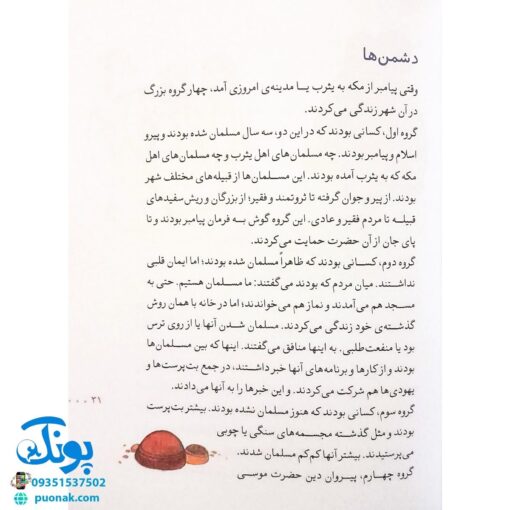 دشمن‌ها
وقتی پیامبر از مکه به یثرب یا مدینه‌ی امروزی آمد، چهار گروه بزرگ
در آن شهر زندگی می‌کردند.
گروه اول، کسانی بودند که در این دو، سه سال مسلمان شده بودند و پیرو
اسلام و پیامبر بودند. چه مسلمان‌های اهل یثرب و چه مسلمان‌های اهل
مکه که به یثرب آمده بودند. این مسلمان‌ها از قبیله‌های مختلف شهر
بودند. از پیر و جوان گرفته تا ثروتمند و فقیر؛ از بزرگان و ریش‌سفیدهای
قبیله تا مردم فقیر و عادی. این گروه گوش به فرمان پیامبر بودند و تا
پای جان از آن حضرت حمایت می‌کردند.
گروه دوم، کسانی بودند که ظاهراً مسلمان شده بودند؛ اما ایمان قلبی
نداشتند. میان مردم که بودند می‌گفتند: ما مسلمان هستیم. حتی به
مسجد هم می‌آمدند و نماز هم می‌خواندند؛ اما در خانه با همان روش
گذشته‌ی خود زندگی می‌کردند. مسلمان شدن آنها یا از روی ترس
بود یا منفعت‌طلبی. به اینها منافق می‌گفتند. اینها که بین مسلمان‌ها
بودند و از کارها و برنامه‌های آنها خبر داشتند، در جمع بت‌پرست‌ها و
یهودی‌ها هم شرکت می‌کردند. و این خبرها را به آنها می‌دادند.
گروه سوم، کسانی بودند که هنوز مسلمان نشده بودند. بیشتر بت‌پرست
بودند و مثل گذشته مجسمه‌های سنگی یا چوبی
می‌پرستیدند. بیشتر آنها کم‌کم مسلمان شدند.
گروه چهارم، پیروان دین حضرت موسی
۲۱
پونک
09351537502
puonak.com